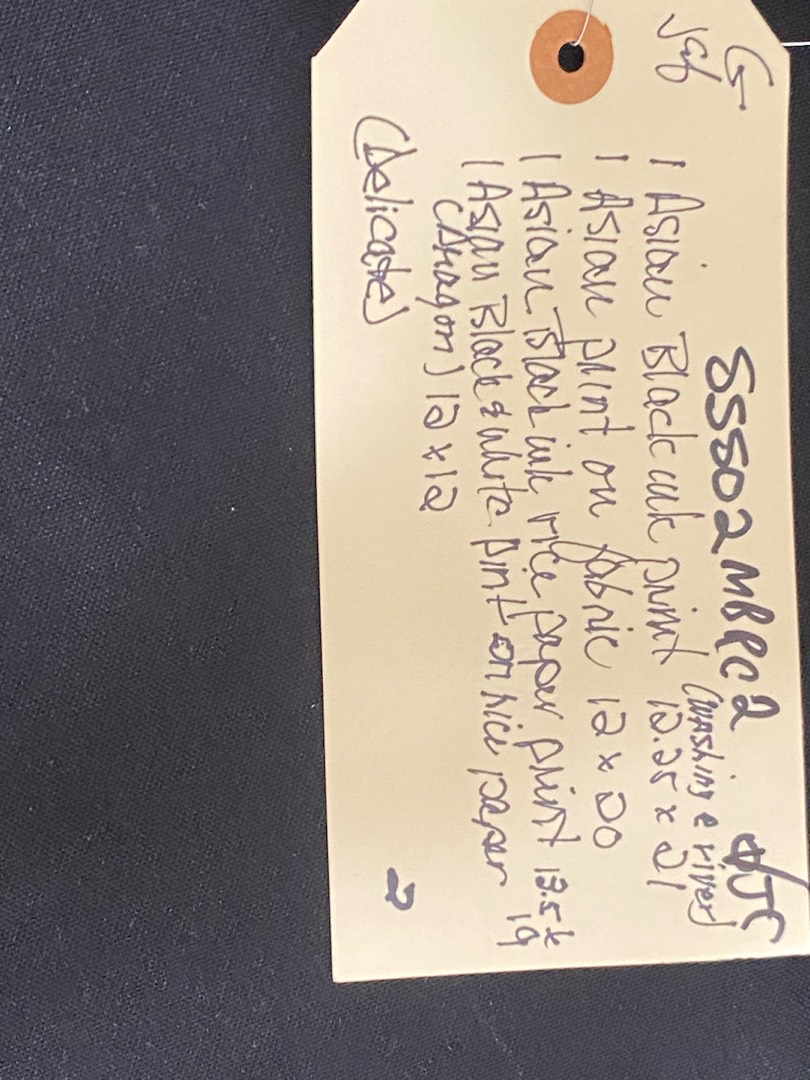 SS502MBPC2
(washing @ river)
1 Asian Black ink print 12.25 x 21
1 Asian print on fabric 12 x 20
1 Asian Black ink rice paper print 13.5 x 19
1 Asian Black & white print on rice paper
(dragon) 12 x 12
(Delicate)
2